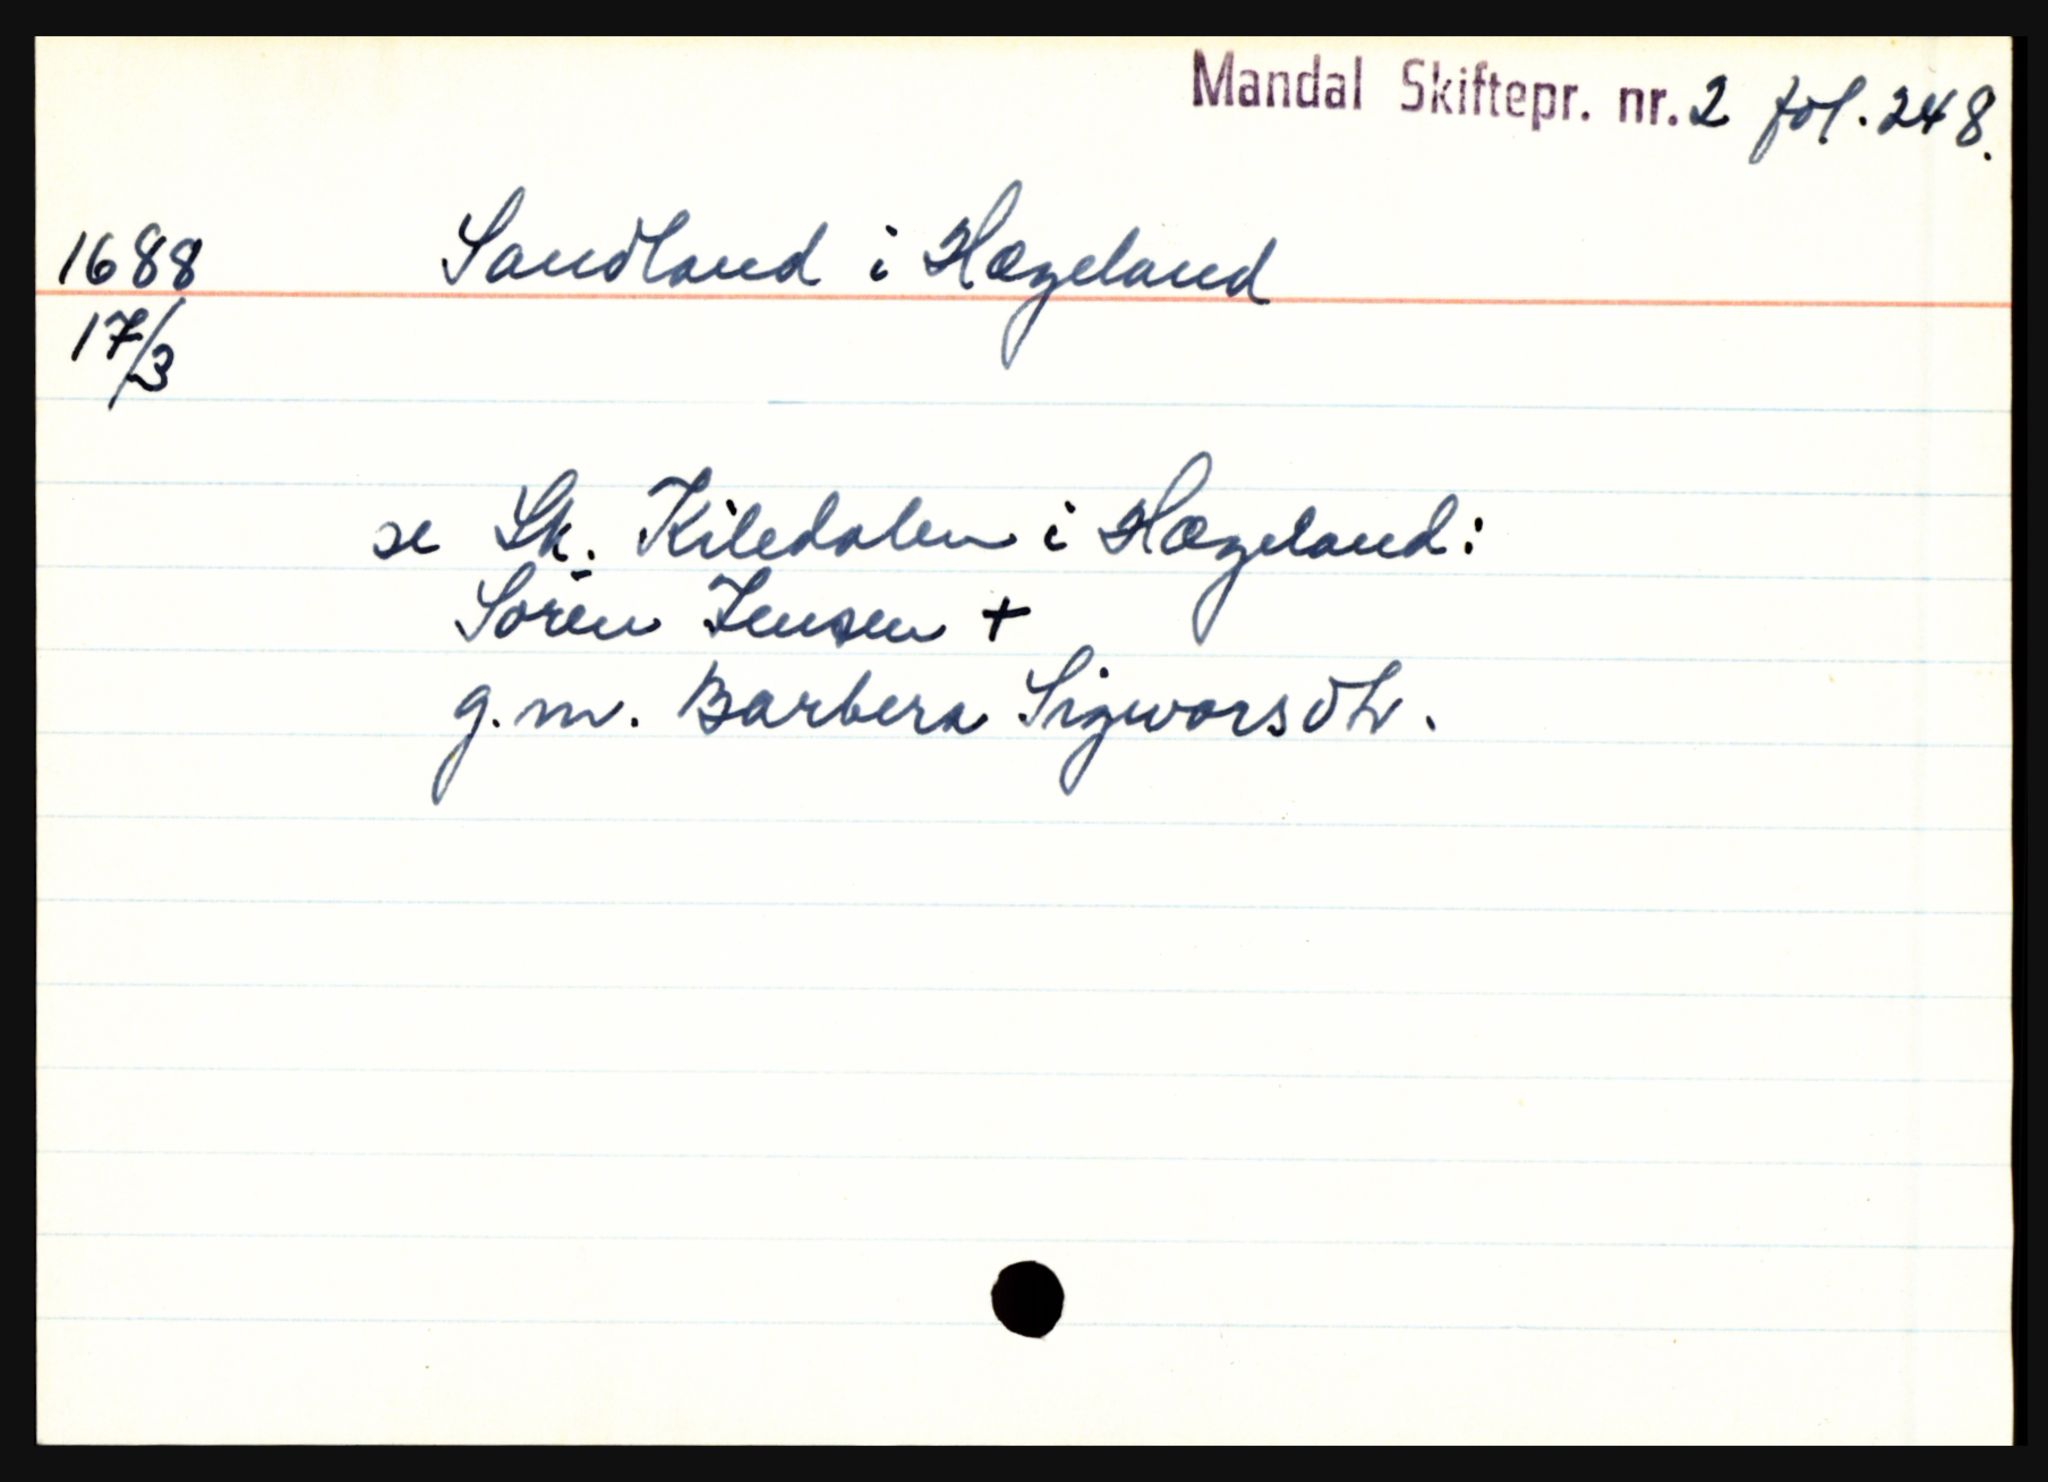 Mandal Skiftepr. nr. 2 fol. 248.
1688 Sandland i Hægeland
17/3
se Sk. Kiledalen i Hægeland:
Sören Jensen +
g.m. Barbera Sigworsdtr.